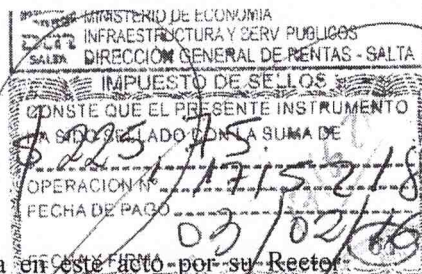 MINISTERIO DE ECONOMIA
INFRAESTRUCTURA Y SERV PUBLICOS
DIRECCIÓN GENERAL DE RENTAS - SALTA
SALTA
IMPUESTO DE SELLOS
CONSTE QUE EL PRESENTE INSTRUMENTO
HA SIDO SELLADO CON LA SUMA DE
$ 225,75
OPERACION Nº 1715218
FECHA DE PAGO 03/02/16
FECHA Y FIRMA
a en este acto por su Rector